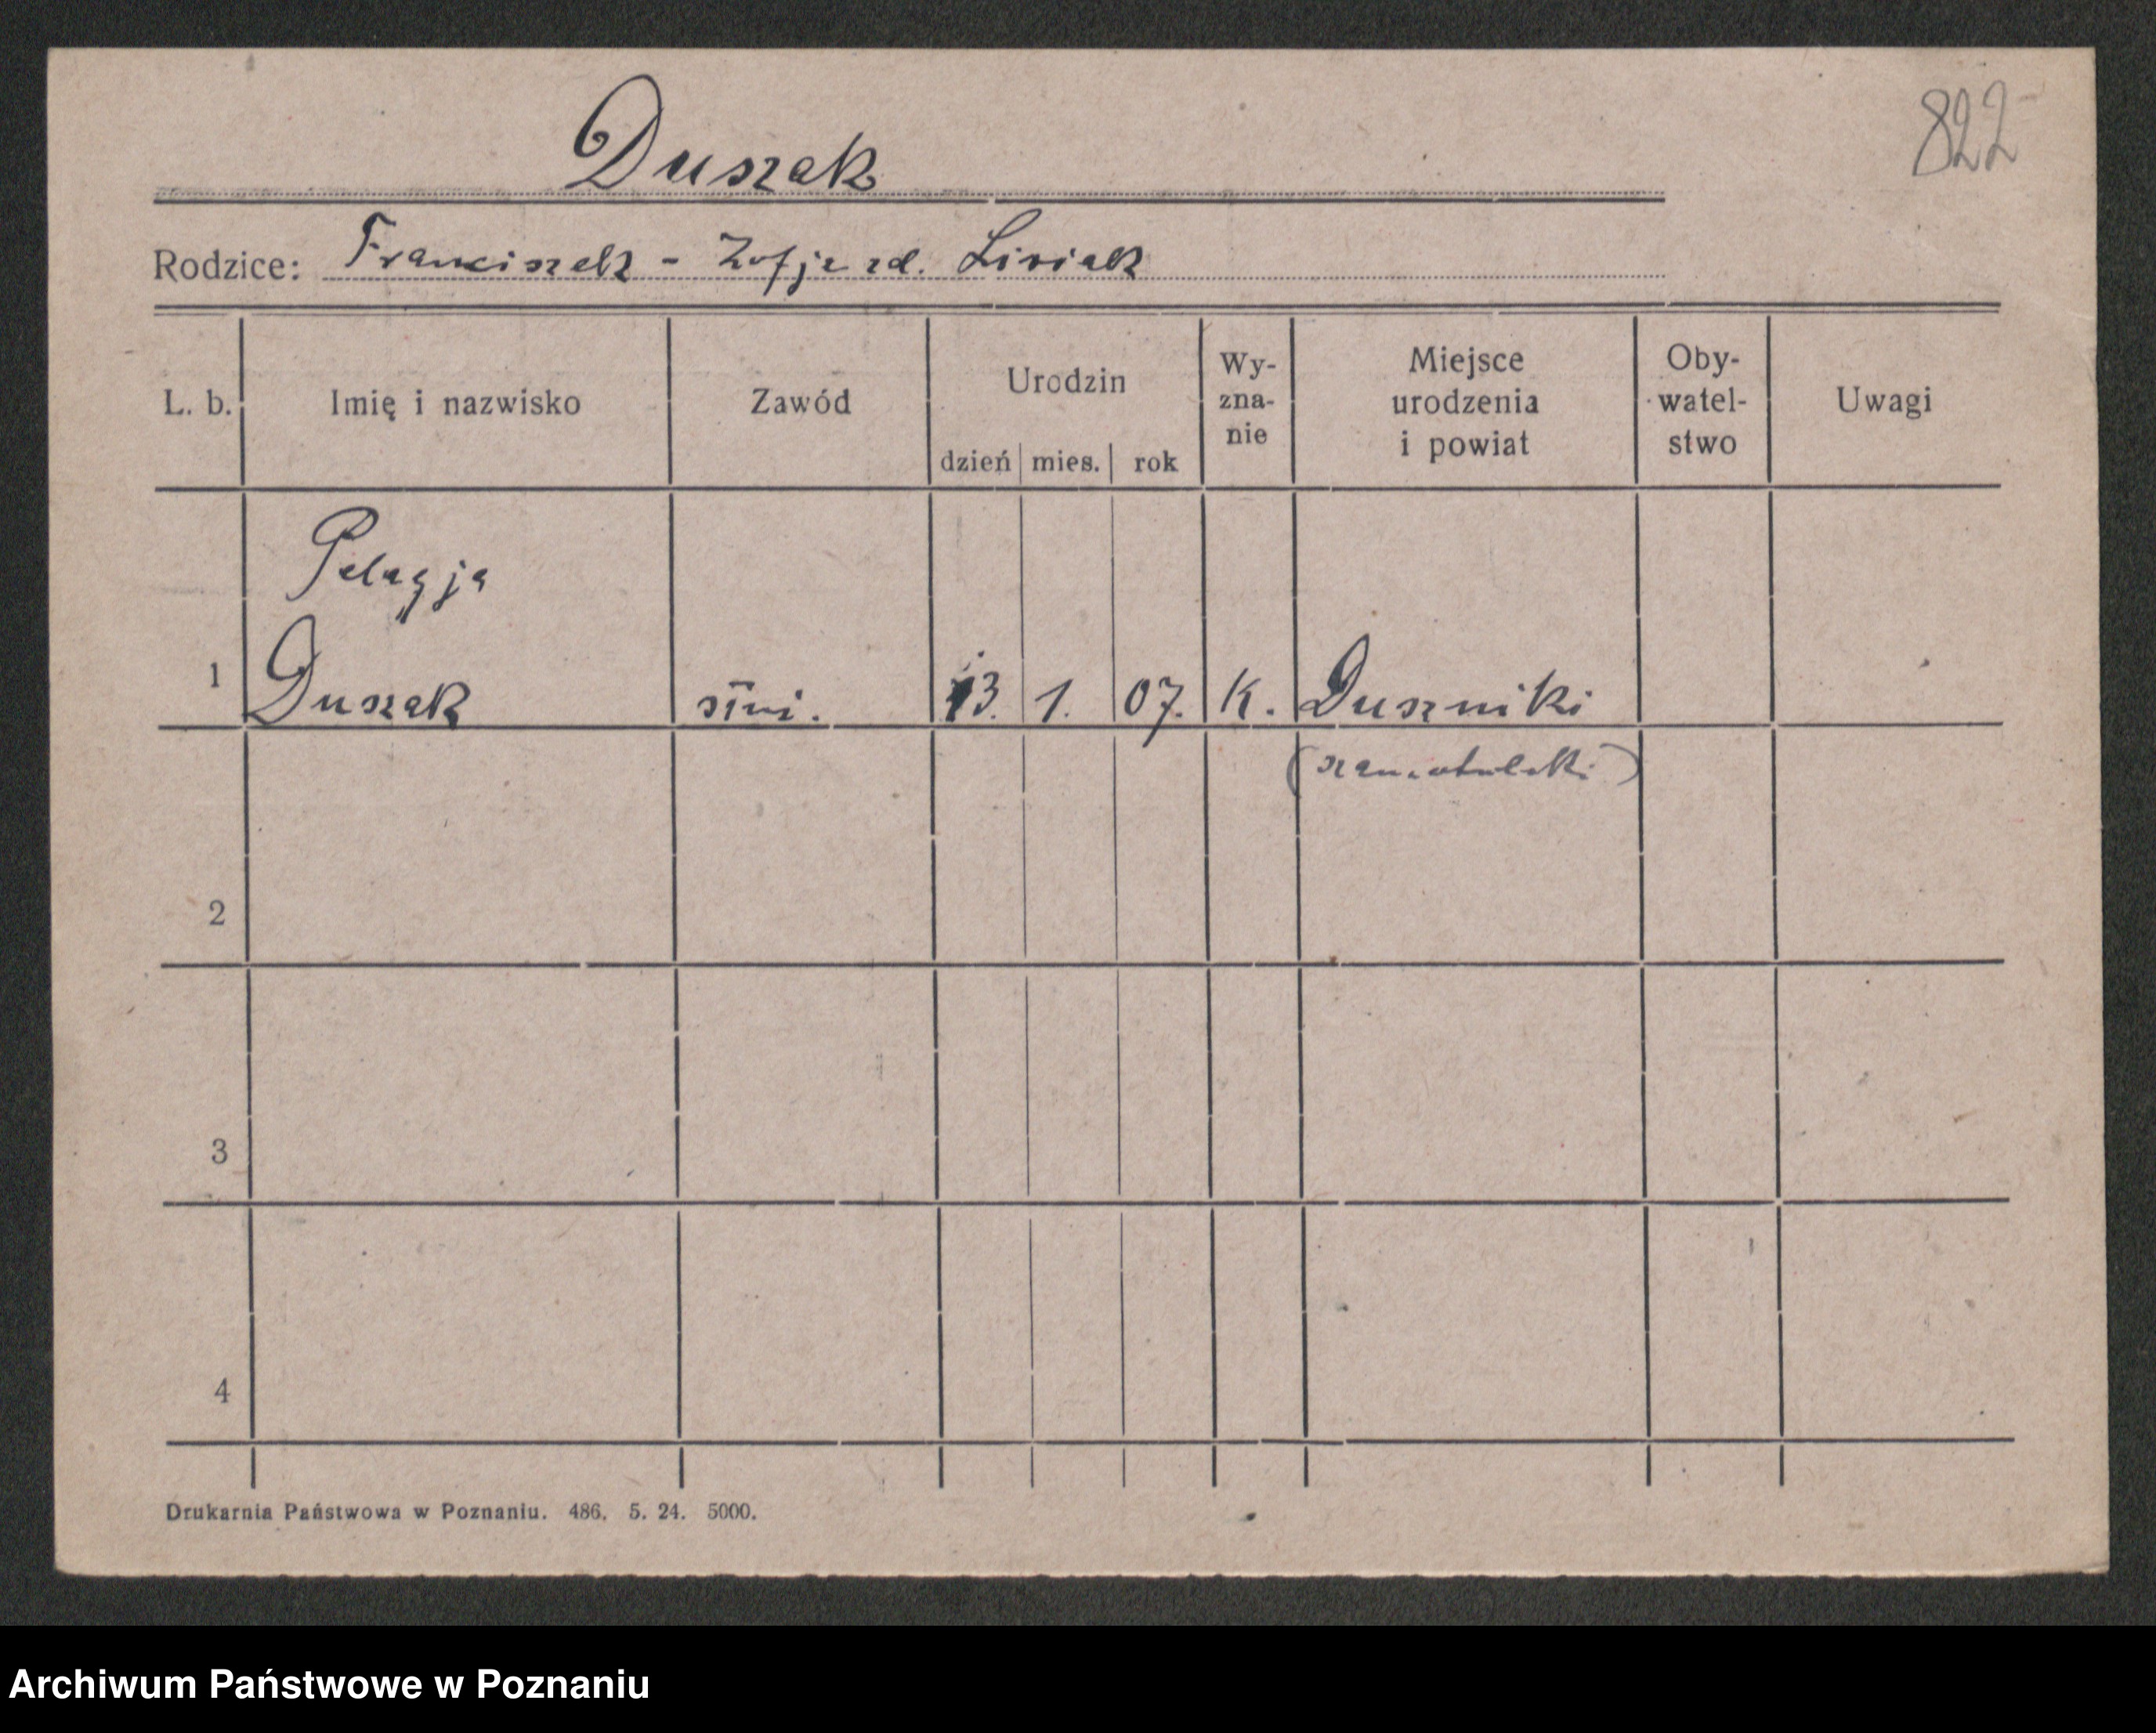 822
Duszak
Rodzice: Franciszek - Zofja zd. Lisiak
L. b. Imię i nazwisko Zawód Urodzin dzień mies. rok Wy-zna-nie Miejsce urodzenia i powiat Oby-watel-stwo Uwagi
Pelagja
1 Duszak 13. 1. 07. K. Duszniki
(szamotulski)
2
3
4
Drukarnia Państwowa w Poznaniu. 486. 5. 24. 5000.
Archiwum Państwowe w Poznaniu